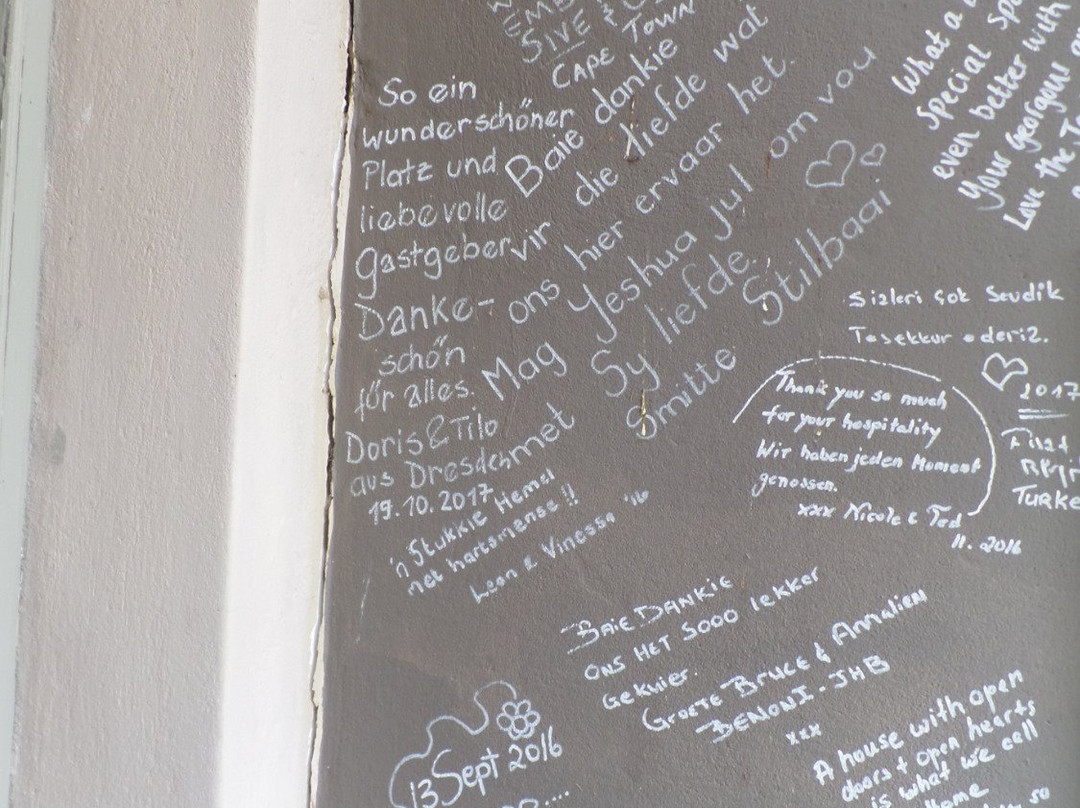 SIVE &
CAPE TOWN
So ein
wunderschöner
Platz und
liebevolle
Gastgeber
Danke-
schön
für alles.
Doris & Tilo
aus Dresden
19.10.2017
Baie dankie
vir die liefde wat
ons hier ervaar het.
Mag Yeshua jul om vou
met Sy liefde.
Smitte Stilbaai
'n Stukkie Hemel
met hartsmense!!
Leon & Vinessa '16
What a
Special
even better with
Your georgous
Love the
Sizleri çok Sevdik
Teşekkur ederiz.
2017
TURKE
Thank you so much
for your hospitality
Wir haben jeden Moment
genossen.
xxx Nicole & Ted
11.2016
BAIE DANKIE
ONS HET SOOO lekker
Gekuier.
GROETE BRUCE & ANNALIEN
BENONI - JHB
xxx
13 Sept 2016
A house with open
doors + open hearts
is what we call
home
so